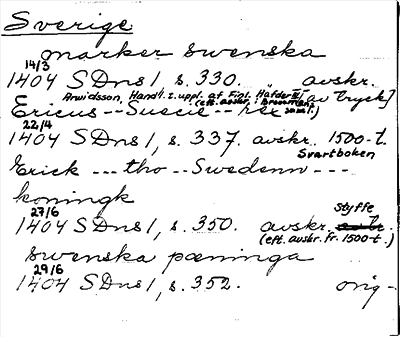 Sverige
marker swenska
14/3
1404 SDns1 s. 330. avskr.
Arwidsson, Handl. t. uppl. af Finl. Häfder III [av tryck]
(eft. avskr. i Broocmans saml.)
Ericus -- Suecie -- rex
22/4
1404 SDns1, s. 337. avskr. 1500-t.
Svartboken
Erick --- tho -- Swedenn ---
koningk
27/6 Styffe
1404 SDns1, s. 350. avskr.
(eft. avskr. fr. 1500-t.)
swenska pæninga
29/6
1404 SDns1, s. 352. orig-